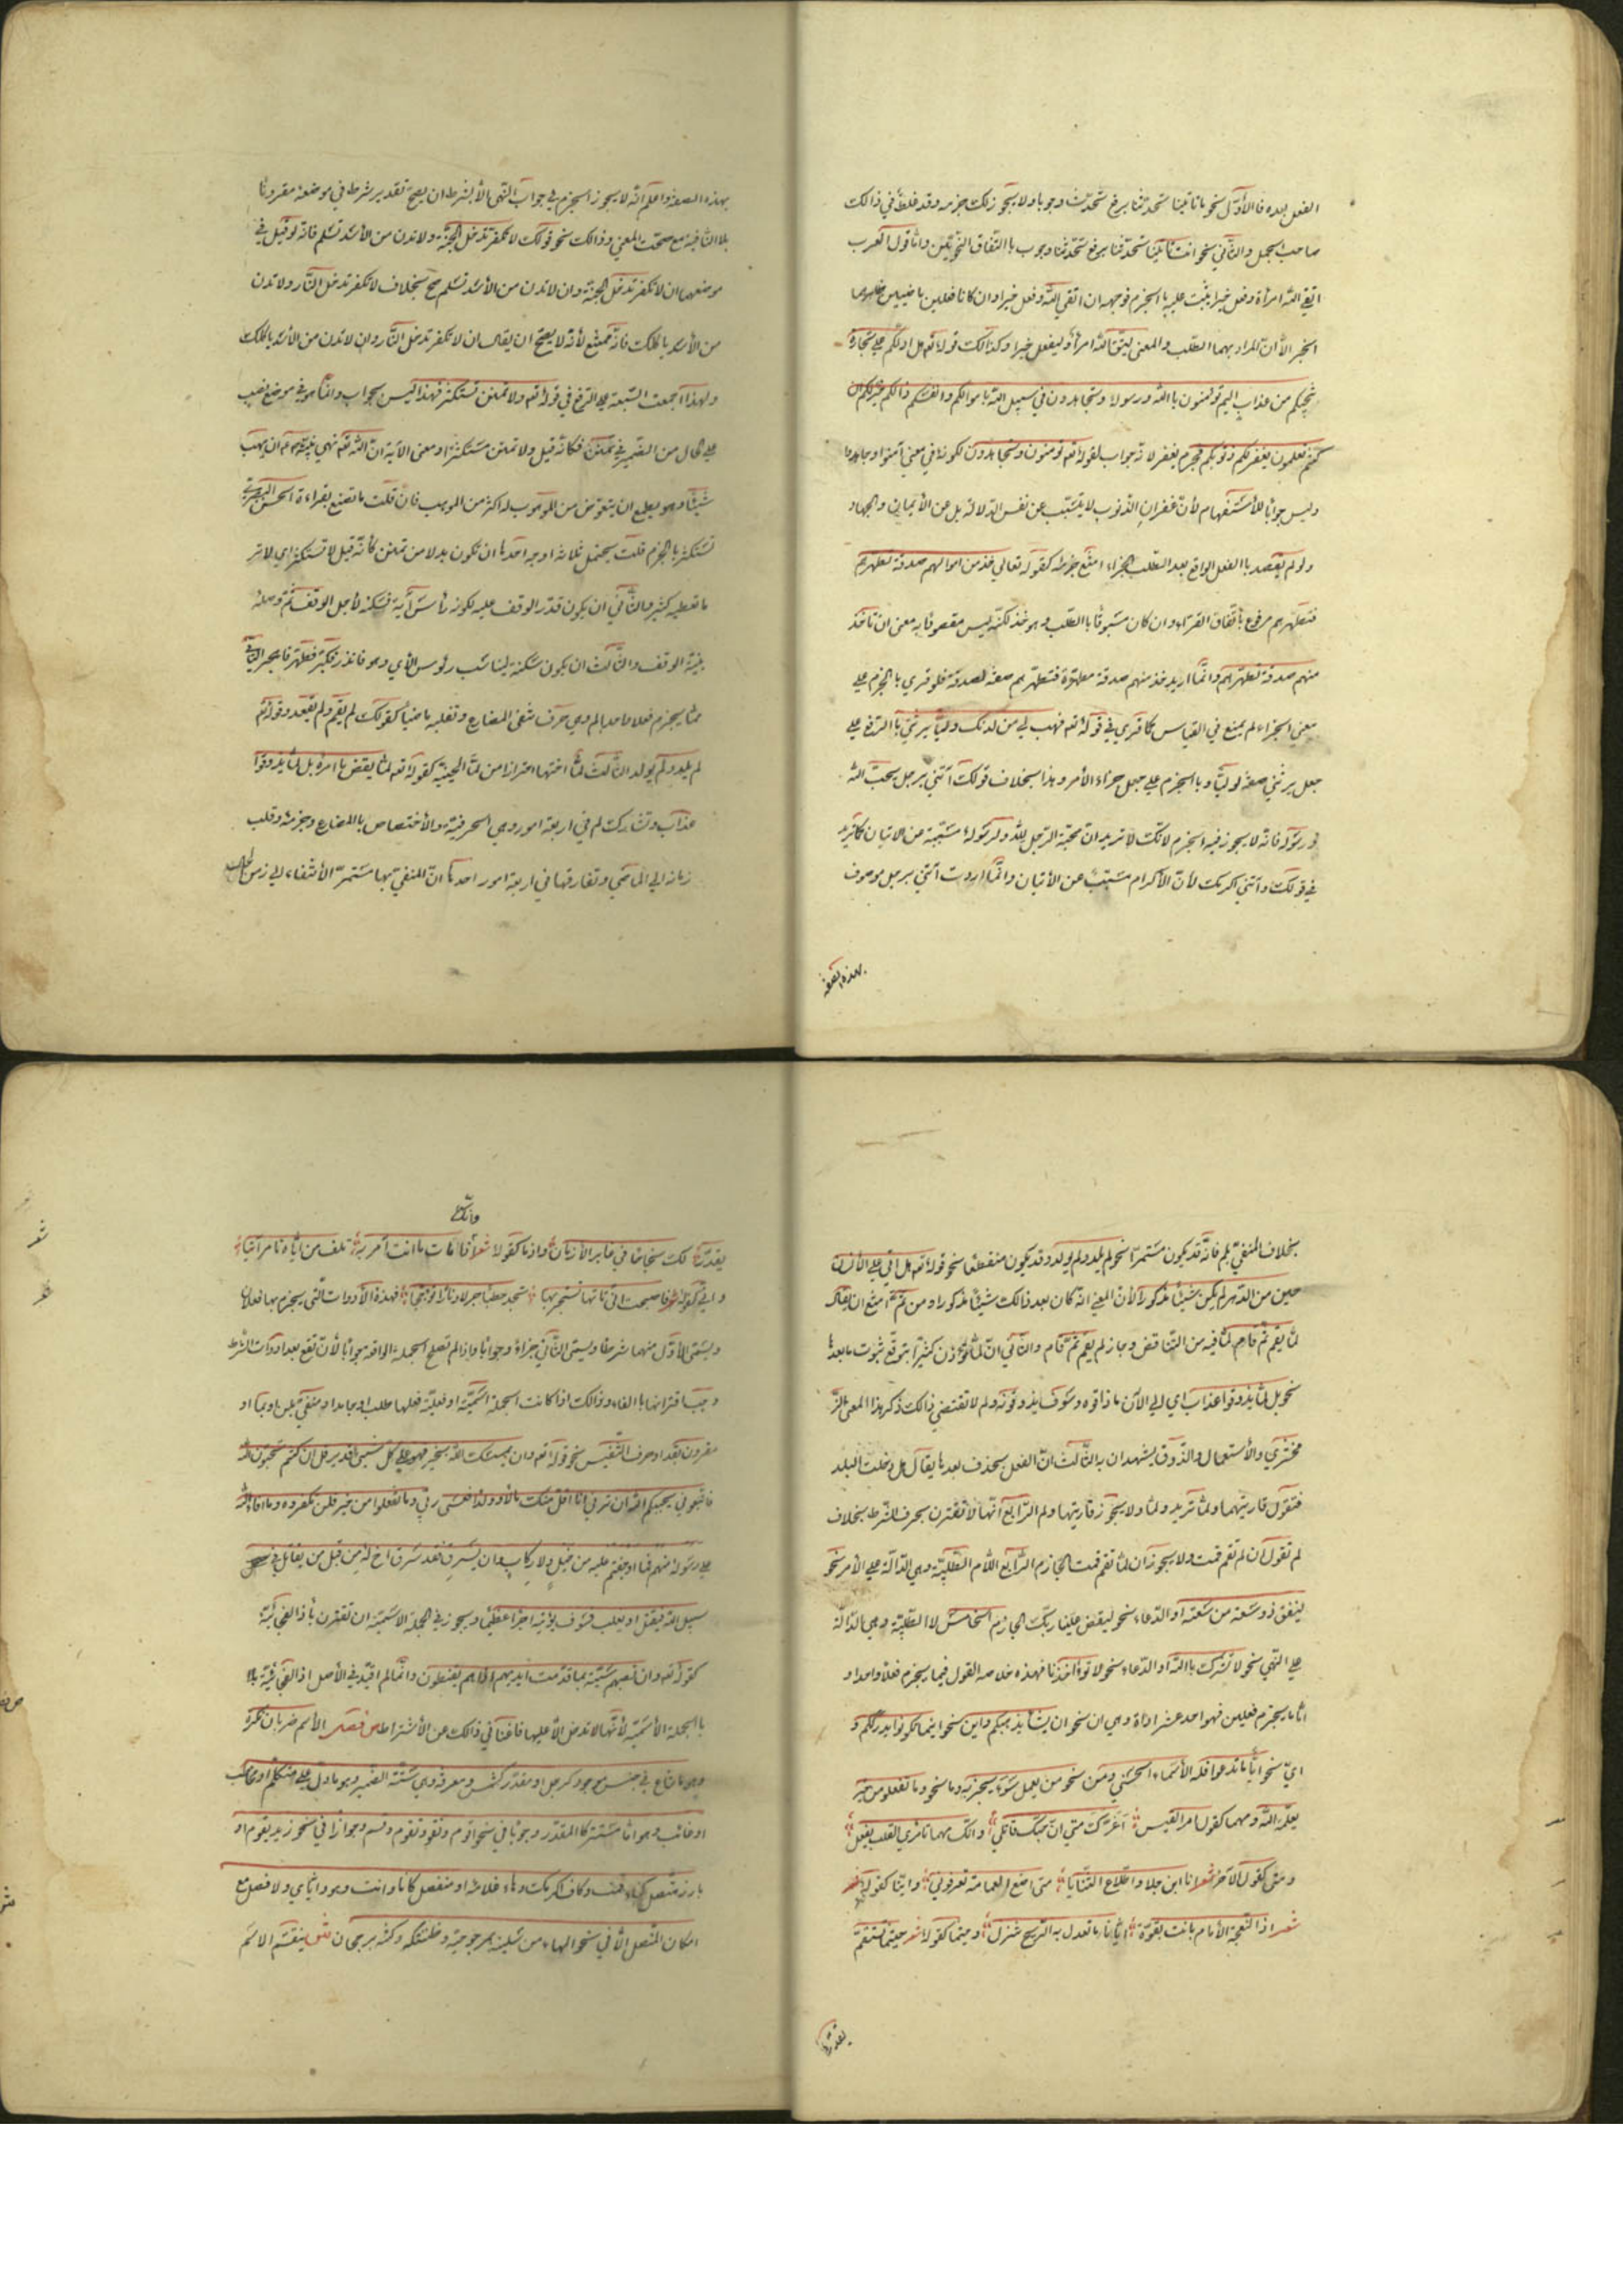 الفعل بعده فالأوّل نحو ما تأتينا تحدّثنا برفع تحدّثنا وجوبا ولا يجوز لك جزمه وقد غلط في ذالك
صاحب الجمل والثاني نحو انت تأتينا تحدّثنا برفع تحدّثنا وجوب باالتّفاق النّحويّين وامّا قول العرب
اتّقى اللّه امرأة وفعل خيرا يثب عليه باالجزم فوجهه ان اتقى اللّه وفعل خيرا وان كانا فعلين ماضيين ظاهرهما
الخبر الّا انّ المراد بهما الطّلب والمعنى ليتّق اللّه امرأ وليفعل خيرا وكذالك قوله تعه هل ادلّكم على تجارة
تنجيكم من عذاب اليم تؤمنون باالله ورسوله وتجاهدون في سبيل اللّه باموالكم وانفسكم ذالكم خير لكم ان
كنتم تعلمون يغفر لكم ذنوبكم فجزم يغفر لانه جواب لقوله تعه تؤمنون وتجاهدون لكونه في معنى آمنوا وجاهدوا
وليس جوابا للأستفهام لأنّ غفران الذّنوب لا يتسبّب عن نفس الدّلالة بل عن الأيمان والجهاد
ولو لم يقصد باالفعل الواقع بعد الطّلب الجزاء امتنع جزمه كقوله تعالى خذ من اموالهم صدقة تطهّرهم
فتطهّرهم مرفوع باتّفاق القرّاء وان كان مسبوقا باالطّلب وهو خذ لكنّه ليس مقصودا به معنى ان تأخذ
منهم صدقة تطهّرهم وانّما اريد خذ منهم صدقة مطهّرة فتطهّرهم صفة لصدقة فلو قرى باالجزم على
معنى الجزاء لم يمتنع في القياس كما قرى في قوله تعه فهب لي من لدنك وليّا يرثني باالرّفع على
جعل يرثني صفة لوليّا وباالجزم على جعل جزاء الأمر وهذا بخلاف قولك آتني برجل يحبّ اللّه
ورسوله فانّه لا يجوز فيه الجزم لانّك لا تريد انّ محبّة الرّجل للّه ولرسوله مسبّبة عن الاتيان كما تريد
في قولك وآتني اكرمك لأنّ الأكرام مسبّب عن الأتيان وانّما اردت آتني برجل موصوف
بهذه الصفة
بهذه الصفة واعلم انّه لا يجوز الجزم في جواب النّهى الّا بشرط ان يصحّ تقدير شرط في موضعه مقرونا
بلا النّافية مع صحّت المعنى وذالك نحو قولك لا تكفر تدخل الجنّة ولا تدن من الأسد تسلم فانه لو قيل في
موضعهما ان لا تكفر تدخل الجنّة وان لا تدن من الأسد تسلم صحّ بخلاف لا تكفر تدخل النّار ولا تدن
من الأسد ياكلك فانّه ممتنع لأنّه لا يصحّ ان يقال ان لا تكفر تدخل النّار وان لا تدن من الأسد ياكلك
ولهذا اجمعت السّبعة على الرّفع في قوله تعه ولا تمنن تستكثر فهذا ليس بجواب وانّما هو في موضع نصب
على الحال من الضّمير في تمنن فكانّه قيل ولا تمنن مستكثرا ومعنى الآية انّ اللّه تعه نهى نبيّه عم ان يهب
شيئا وهو يطمع ان يتعوّض من الموهوب له اكثر من الموهب فان قلت ما تصنع بقراءة الحسن البصريّ
تستكثر باالجزم قلت يحتمل ثلاثة اوجه احدها ان تكون بدلا من تمنن كأنّه قيل لا تستكثر اى لا تر
ما تعطيه كثيرا والثّاني ان يكون قدّر الوقف عليه لكونه رأس آية فسكنه لأجل الوقف ثمّ وصله
بنيّة الوقف والثّالث ان يكون سكنه ليناسب رؤس الأي وهو فانذر فكبّر فطهّر فاهجر الثّاني
ممّا يجزم فعلا واحدا لم وهى حرف تنفى المضارع وتقلبه ماضيا كقولك لم يقم ولم يقعد وقوله تع
لم يلد ولم يولد الثّالث لمّا اختها احترازا من لمّا الحينيّة كقوله تعه لمّا يقض ما امره بل لمّا يذوقوا
عذاب وتشارك لم في اربعة امور وهى الحرفيّة والأختصاص باالمضارع وجزمه وقلب
زمانه الى الماضي وتفارقها في اربعة امور احدها انّ المنفيّ بها مستمرّ الأنتفاء الى زمن الحال
بخلاف المنفيّ بلم فانّه قد يكون مستمرّا نحو لم يلد ولم يولد وقد يكون منقطعا نحو قوله تعه هل اتى على الأنسان
حين من الدّهر لم يكن شيئا مذكورا لأنّ المعنى انّه كان بعد ذالك شيئا مذكورا ومن ثمّه امتنع ان يقال
لمّا يقم ثمّ قام لما فيه من التّناقض وجاز لم يقم ثمّ قام والثّاني انّ لمّا تؤذن كثيرا بتوقّع ثبوت ما بعدها
نحو بل لمّا يذوقوا عذاب اي الى الآن ما ذاقوه وسوف يذوقونه ولم لا تقتضي ذالك ذكر هذا المعنى الزّ
مخشريّ والأستعمال والذّوق يشهدان به الثّالث انّ الفعل يحذف بعدها يقال هل دخلت البلد
فتقول قاربتها ولمّا تريد ولمّا ولا يجوز قاربتها ولم الرّابع انّها لا تقترن بحرف الشّرط بخلاف
لم تقول ان لم تقم قمت ولا يجوز ان لمّا تقم قمت الجازم الرّابع اللّام الطّلبيّة وهى الدّالّة على الأمر نحو
لينفق ذو سعة من سعته او الدّعاء نحو ليقض علينا ربّك الجازم الخامس لا الطّلبيّة وهى الدّالّة
على النّهي نحو لا تشرك باالله او الدّعاء نحو لا تؤاخذنا فهذه خلاصة القول فيما يجزم فعلا واحدا و
امّا ما يجزم فعلين فهو احد عشر اداة وهى ان نحو ان يشأ يذهبكم واين نحو اينما تكونوا يدرككم و
ايّ نحو ايّا ما تدعوا فله الأسماء الحسنى ومن نحو من يعمل سوء يجز به وما نحو وما تفعلو من خير
يعلمه اللّه ومهما كقول امرأ القيس اغرّك منّي انّ حبّك قاتلي وانّك مهما تأمري القلب يفعل
ومتى كقول الآخر شعر انا ابن جلا وطلّاع الثّنايا متى اضع العمامة تعرفوني وايّان كقوله
شعر اذا النّعجة الأدماء باتت بقفرة ايّان ما تعدل به الرّيح تنزل وحيثما كقوله شعر حيثما تستقم
يقدّر
وانّك
يقدّر لك نجاحا في غابر الأزمان واذما كقوله شعر اذما تأت ما انت آمر به تلف من ايّاه تأمر آتيا
وانّى كقوله شعر فاصبحت انّى تأتها تستجر بها تجد حطبا جزلا ونارا تأجّجا فهذه الأدوات الّتى يجزم بها فعلان
ويسمّى الأوّل منهما شرطا ويسمّى الثّاني جزاء وجوابا واذا لم تصلح الجملة الواقعة جوابا لأن تقع بعد ادوات الشّرط
وجب اقترانها باالفاء وذالك اذا كانت الجملة اسميّة او فعليّة فعلها طلب او جامد او منفيّ بلن او بما او
مقرون بقد او حرف التّنفيس نحو قوله تعه وان يمسسك اللّه بخير فهو على كلّ شيئ قدير قل ان كنتم تحبّون اللّه
فاتّبعوني يحببكم اللّه ان ترنى انا اقلّ منك مالا وولدا فعسى ربّي وما تفعلوا من خير فلن تكفروه وما افاء اللّه
على رسوله منهم فما اوجفتم عليه من خيل ولا ركاب وان يسرق فقد سرق اخ له من قبل من يقاتل في
سبيل اللّه فيقتل او يغلب فسوف نؤتيه اجرا عظيما ويجوز في الجملة الاسميّة ان تقترن باذا الفجائيّة
كقوله تعه وان تصبهم سيّئة بما قدّمت ايديهم اذا هم يقنطون وانّما لم اقيّد في الأصل اذا الفجائيّة بالا
باالجملة الأسميّة لأنّها لا تدخل الّا عليها فاغنانى ذالك عن الأشتراط ص فصل الأسم ضربان نكرة
وهو ما شاع في جنس موجود كرجل او مقدّر كشمس ومعرفة وهى ستّة الضّمير وهو ما دلّ على متكلّم او مخاطب
او غائب وهو امّا مستتر كاالمقدّر وجوبا في نحو اقوم ونقوم وتقوم وقم وجوازا في نحو زيد يقوم او
بارز متّصل كتاء قمت وكاف اكرمك وهاء غلامه او منفصل كانا وانت وهو وايّاي ولا فصل مع
امكان المتّصل الّا في نحو الهاء من سلنيه بمرجوحيّة وظننتكه وكنته برجحان ش ينقسم الاسم